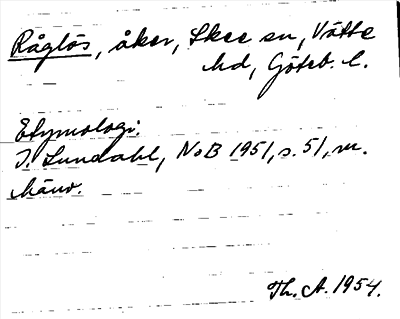 Råglös, åker, Skee sn, Vätte
hd, Göteb. l.
Etymologi.
I. Lundahl, NoB 1951, s. 51, m.
hänv.
Th. A. 1954.